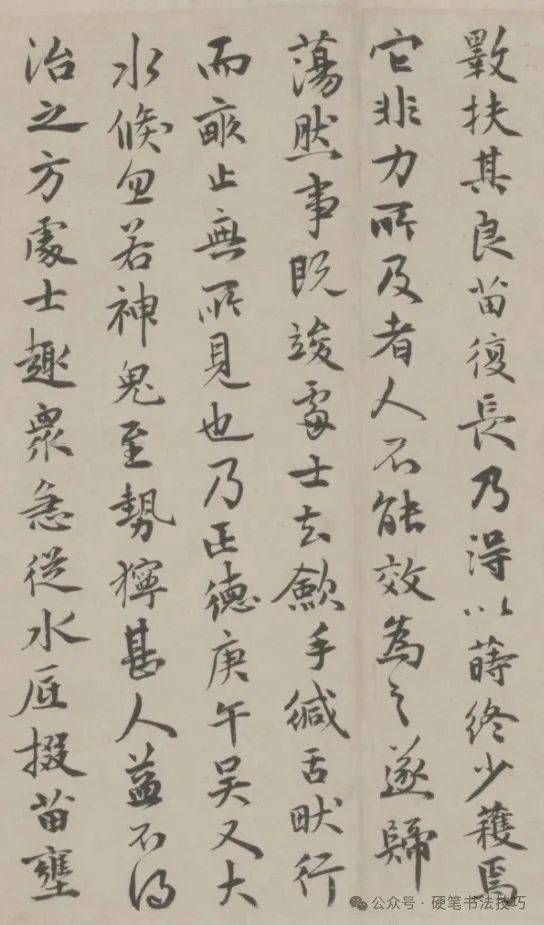 數扶其良苗復長乃得以蒔終少穫焉
它非力所及者人不能效為之遂歸
蕩然事既竣處士去斂手緘舌畎行
而畝止無所見也乃正德庚午吳又大
水倏忽若神鬼至勢獰甚人益不得
治之方處士趣眾急從水底掇苗壅
公众号 · 硬笔书法技巧